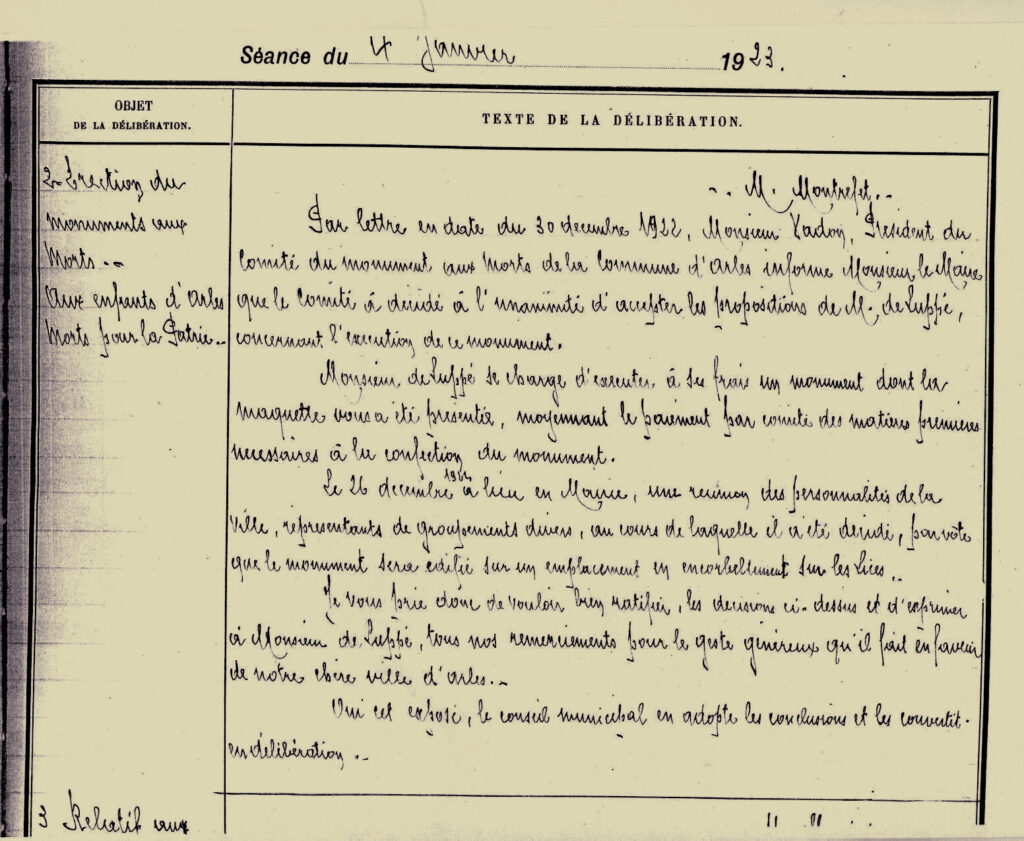 Séance du 4 Janvier 1923.
OBJET
DE LA DÉLIBÉRATION.
TEXTE DE LA DÉLIBÉRATION.
2 - Erection du
monuments aux
Morts. --
Aux enfants d'Arles
Morts pour la Patrie --
-. M. Montrefet. -
Par lettre en date du 30 decembre 1922, Monsieur Vadon, President du
Comité du monument aux Morts de la Commune d'Arles informe Monsieur le Maire
que le Comité à décidé à l'unanimité d'accepter les propositions de M. de Luppé,
concernant l'execution de ce monument.
Monsieur de Luppé se charge d'executer à ses frais un monument dont la
maquette vous a été presentée, moyennant le paiement par comité des matières premières
necessaires à la confection du monument.
Le 26 decembre 1922 à lieu en Mairie, une reunion des personnalités de la
Ville, représentants de groupements divers, au cours de laquelle il a été décidé, par vote
que le monument sera édifié sur un emplacement en encorbellement sur les Lices --
Je vous prie donc de vouloir bien ratifier, les decisions ci-dessus et d'exprimer
à Monsieur de Luppé, tous nos remerciements pour le geste généreux qu'il fait en faveur
de notre chère ville d'Arles. -
Oui cet exposé, le conseil municipal en adopte les conclusions et les convertit
en délibération --
3 Relatif aux